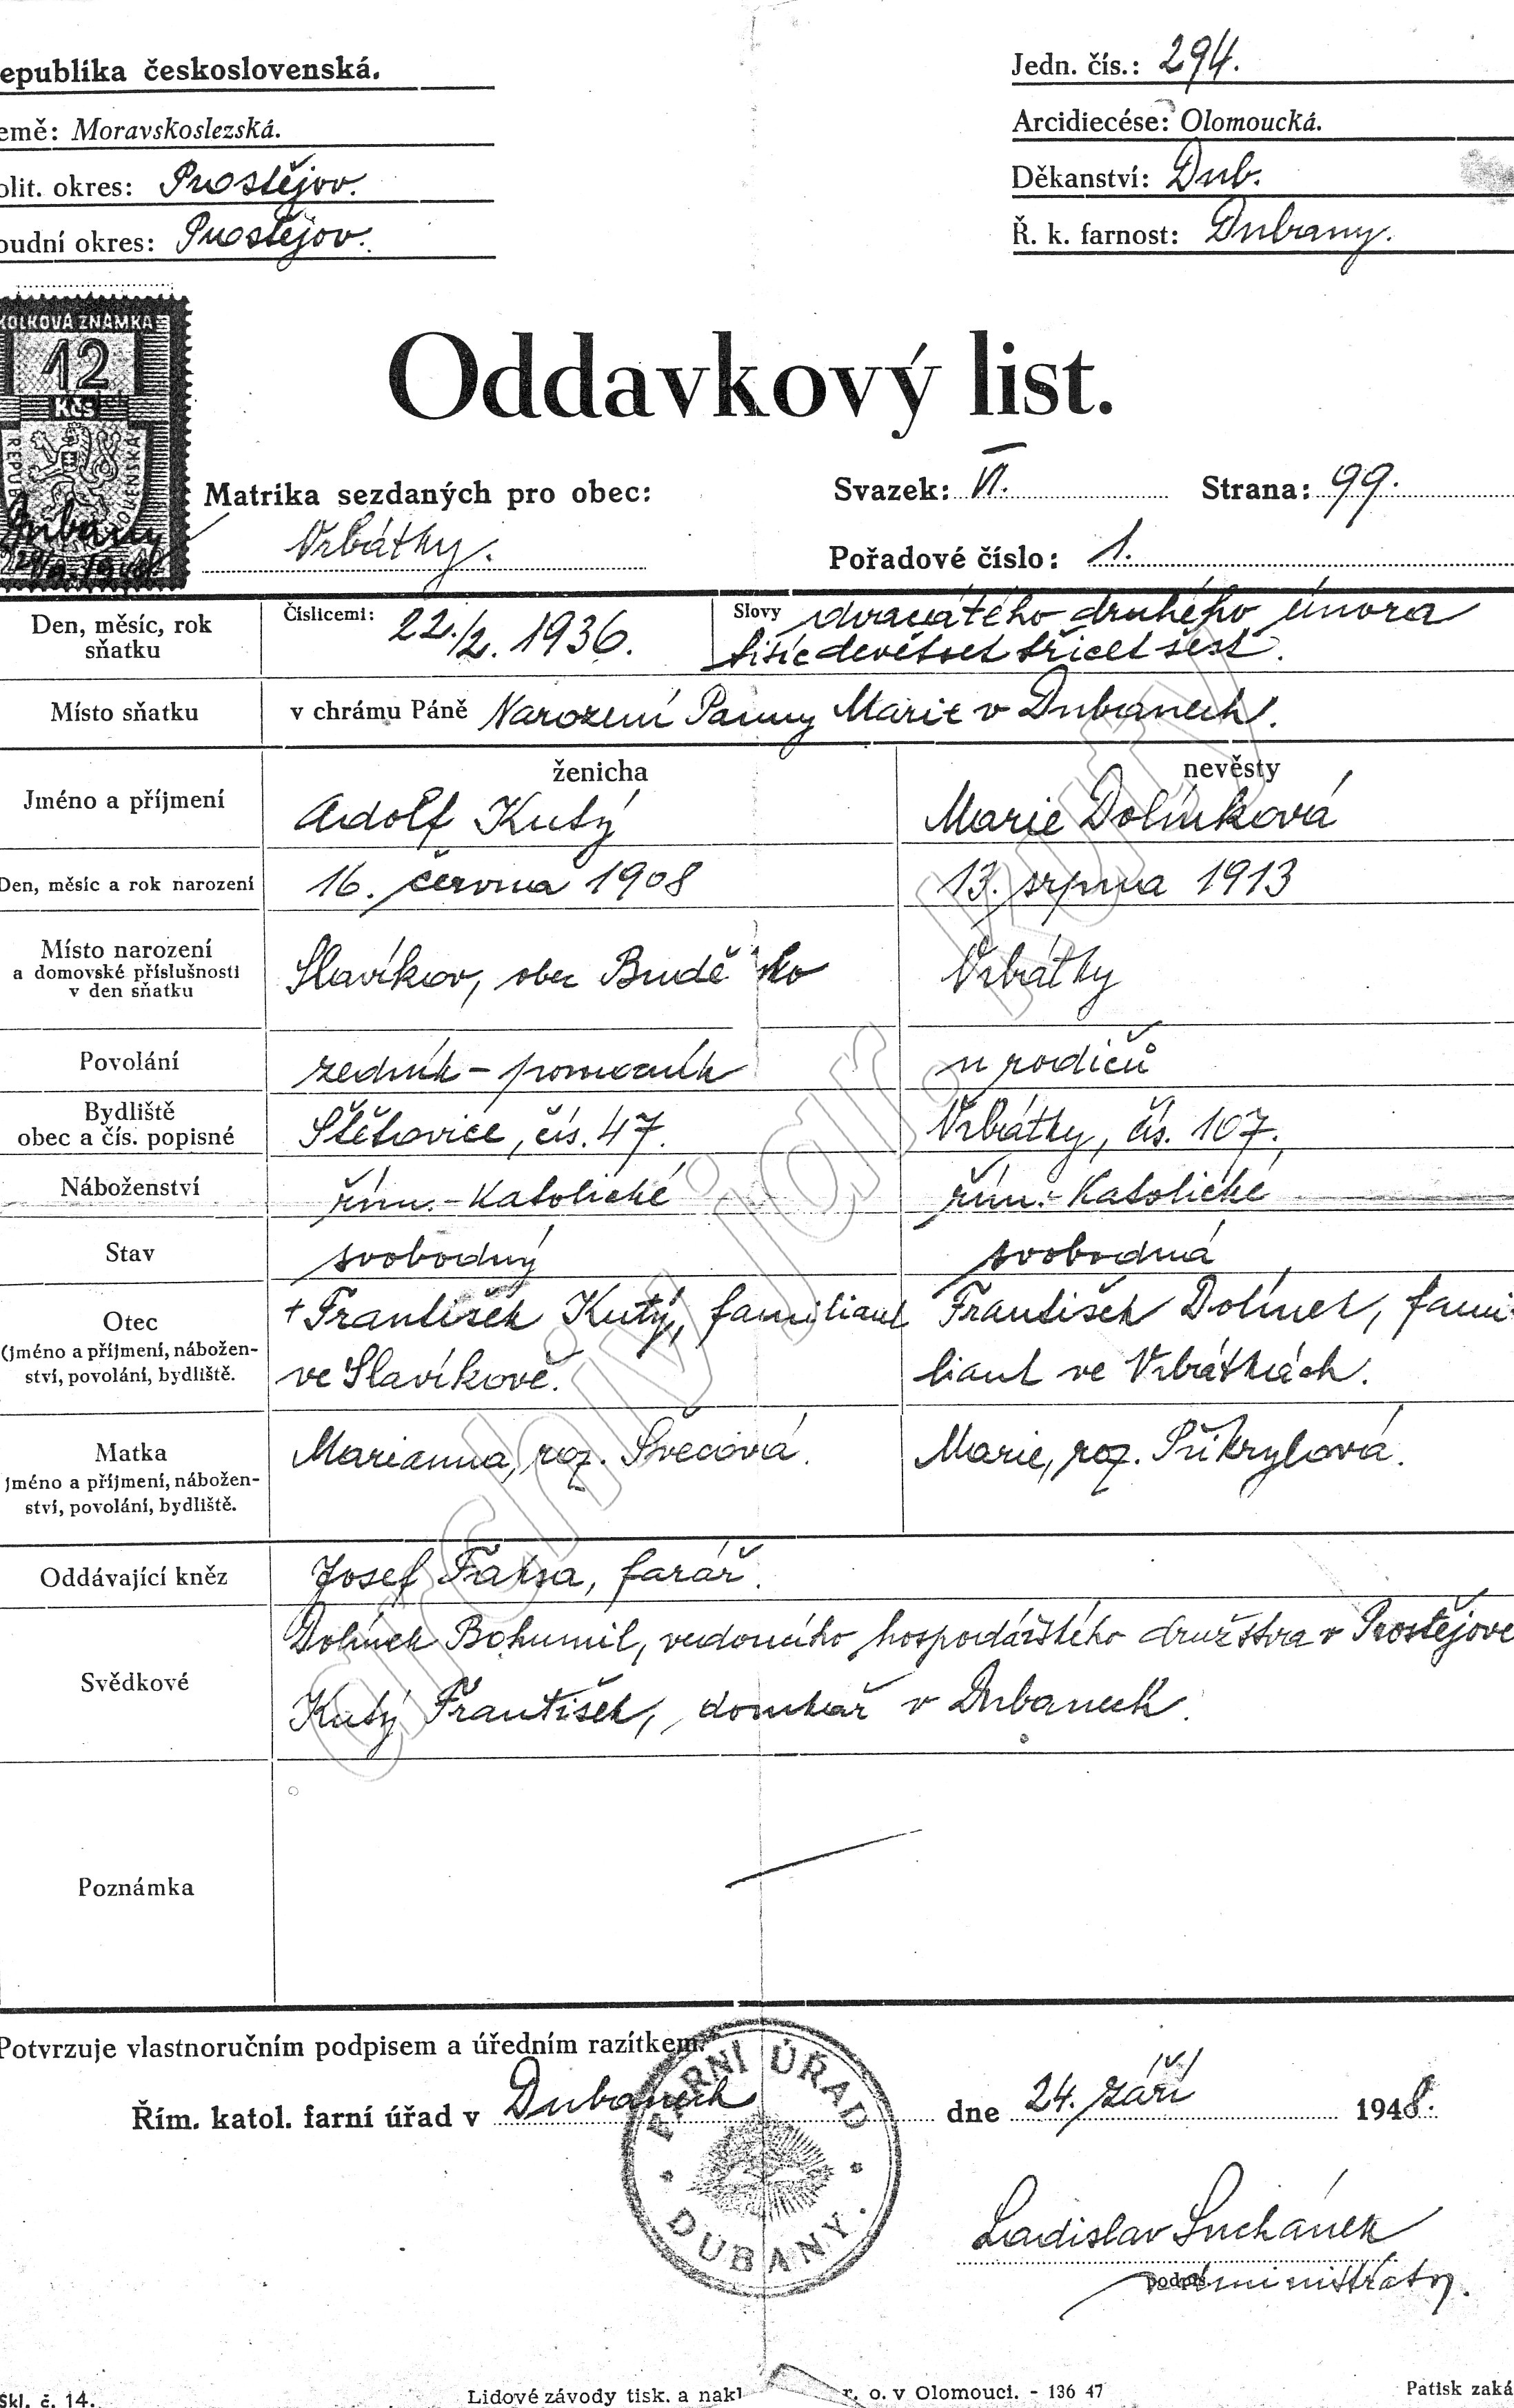 epublika československá.
Jedn. čís.: 294.
emě: Moravskoslezská.
Arcidiecése: Olomoucká.
olit. okres: Prostějov.
Děkanství: Dub.
oudní okres: Prostějov.
Ř. k. farnost: Dubany.
KOLKOVÁ ZNÁMKA
12
Kčs
Oddavkový list.
Matrika sezdaných pro obec:
Svazek: VI. Strana: 99.
Vrbátky.
Pořadové číslo: 1.
Den, měsíc, rok
sňatku
Číslicemi: 22./2. 1936.
Slovy dvacátého druhého února
tisícdevětset třicet šest.
Místo sňatku
v chrámu Páně Narození Panny Marie v Dubanech.
ženicha
nevěsty
Jméno a příjmení
Adolf Kutý
Marie Dolínková
Den, měsíc a rok narození
16. června 1908
13. srpna 1913
Místo narození
a domovské příslušnosti
v den sňatku
Slavíkov, obec Budě ko
Vrbátky
Povolání
zedník – pomocník
u rodičů
Bydliště
obec a čís. popisné
Štětovice, čís. 47.
Vrbátky, čís. 107.
Náboženství
řím. - katolické
řím. - katolické
Stav
svobodný
svobodná
Otec
(jméno a příjmení, nábožen-
ství, povolání, bydliště.
† František Kutý, familiant
ve Slavíkově.
František Dolínek, fami-
liant ve Vrbátkách.
Matka
jméno a příjmení, nábožen-
ství, povolání, bydliště.
Marianna, roz. Švecová.
Marie, roz. Přikrylová.
Oddávající kněz
Josef Faksa, farář.
Svědkové
Dolínek Bohumil, vedoucího hospodářského družstva v Prostějově
Kutý František, domkař v Dubanech.
archiv jar. kutý
Poznámka
Potvrzuje vlastnoručním podpisem a úředním razítkem:
Řím. katol. farní úřad v Dubanech dne 24. září 1948.
FARNÍ ÚŘAD
DUBANY.
Ladislav Suchánek
podpis
administrátor.
Skl. č. 14.
Lidové závody tisk. a nakl r. o. v Olomouci. - 136 47
Patisk zaká